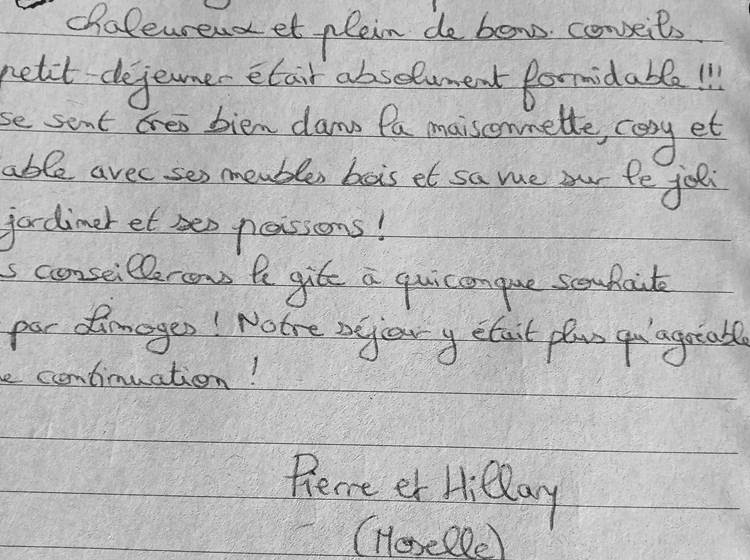 chaleureux et plein de bons conseils
petit-déjeuner était absolument formidable !!!
se sent très bien dans la maisonnette, cosy et
able avec ses meubles bois et sa vue sur le joli
jardinet et ses poissons !
s conseillerons le gîte à quiconque souhaite
par Limoges ! Notre séjour y était plus qu'agréable
e continuation !
Pierre et Hillary
(Moselle)